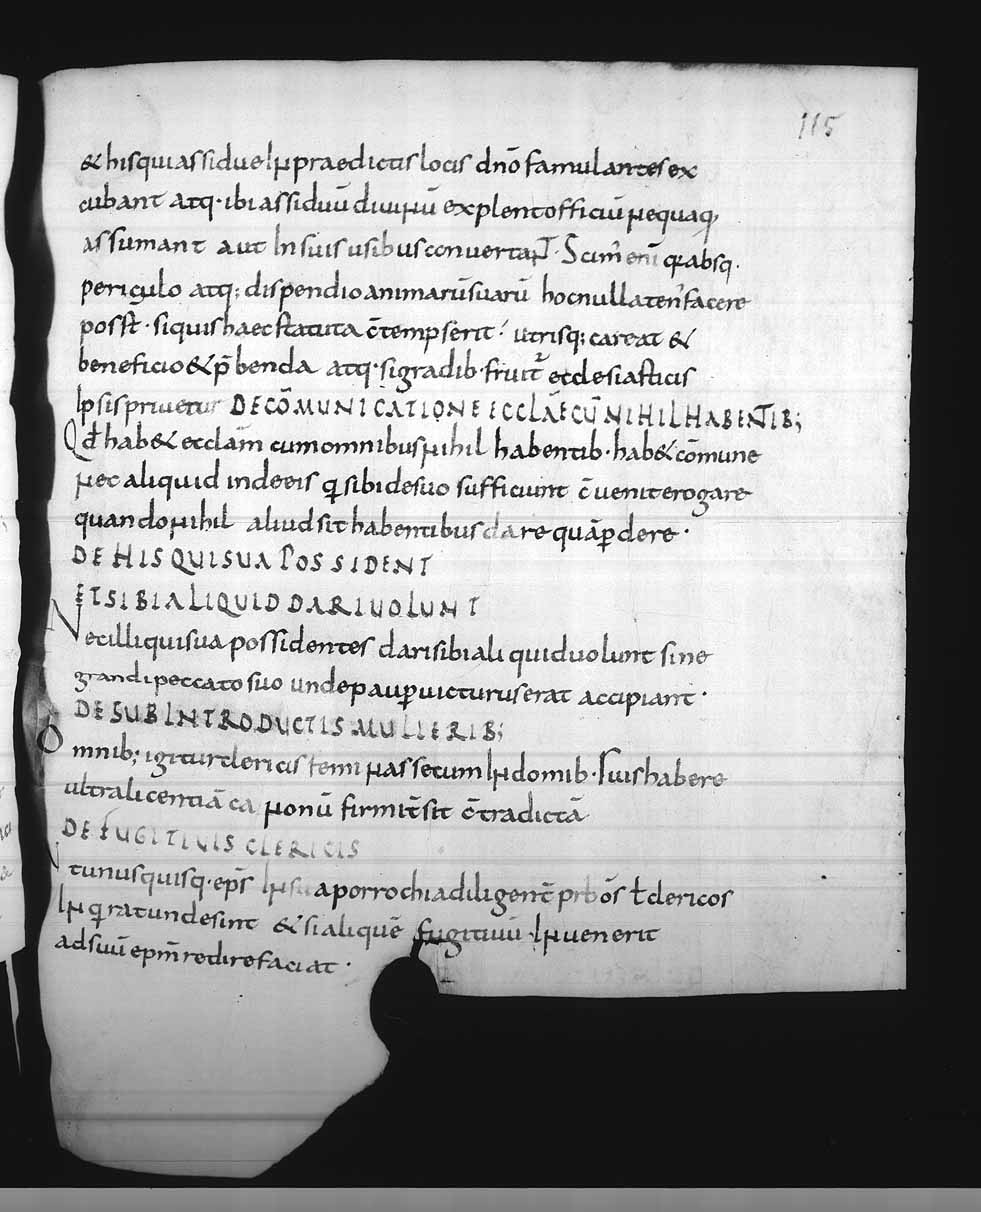 115
& hisqui assidue In praedictis locis dnō famulantes ex
cubant atq· ibi assiduū diuinū explent officiū nequaq,
assumant aut In suis usibus conuertant· Scim̄ enī q absq·
periculo atq; dispendio animarū suarū hoc nullaten' facere
posst̄· siquis haec statuta c̄tempserit· utrisq; careat &
beneficio & p̄benda atq· si gradib· fruit ecclesiasticis
Ipsis priuetur DE CŌMUNICATIONE ECCLAE CŪ NIHIL HABENTIB;
Qd̄ hab& ecclam̄ cum omnibus nihil habentib· hab& cōmune
nec aliquid inde eis q sibi de suo sufficiunt c̄uenit erogare
quando nihil aliud sit habentibus dare quā pdere·
DE HIS QUI SUA POSSIDENT
ET SIBI ALIQUID DARI UOLUNT
Nec illi qui sua possidentes dari sibi aliquid uolunt sine
grandi peccato suo unde paup uicturus erat accipiant·
DE SUBINTRODUCTIS MULIERIB;
Omnib; igitur clericis feminas secum In domib· suis habere
ultra licentiā canonū firmit̄ sit c̄tradictā
DE FUGITIUIS CLERICIS
Ut unusquisq· eps̄ In sua porrochia diligent̄ prbōs t̄ clericos
In qrat unde sint & si aliquē fugitiuū Inuenerit
ad suū epm̄ redire faciat·